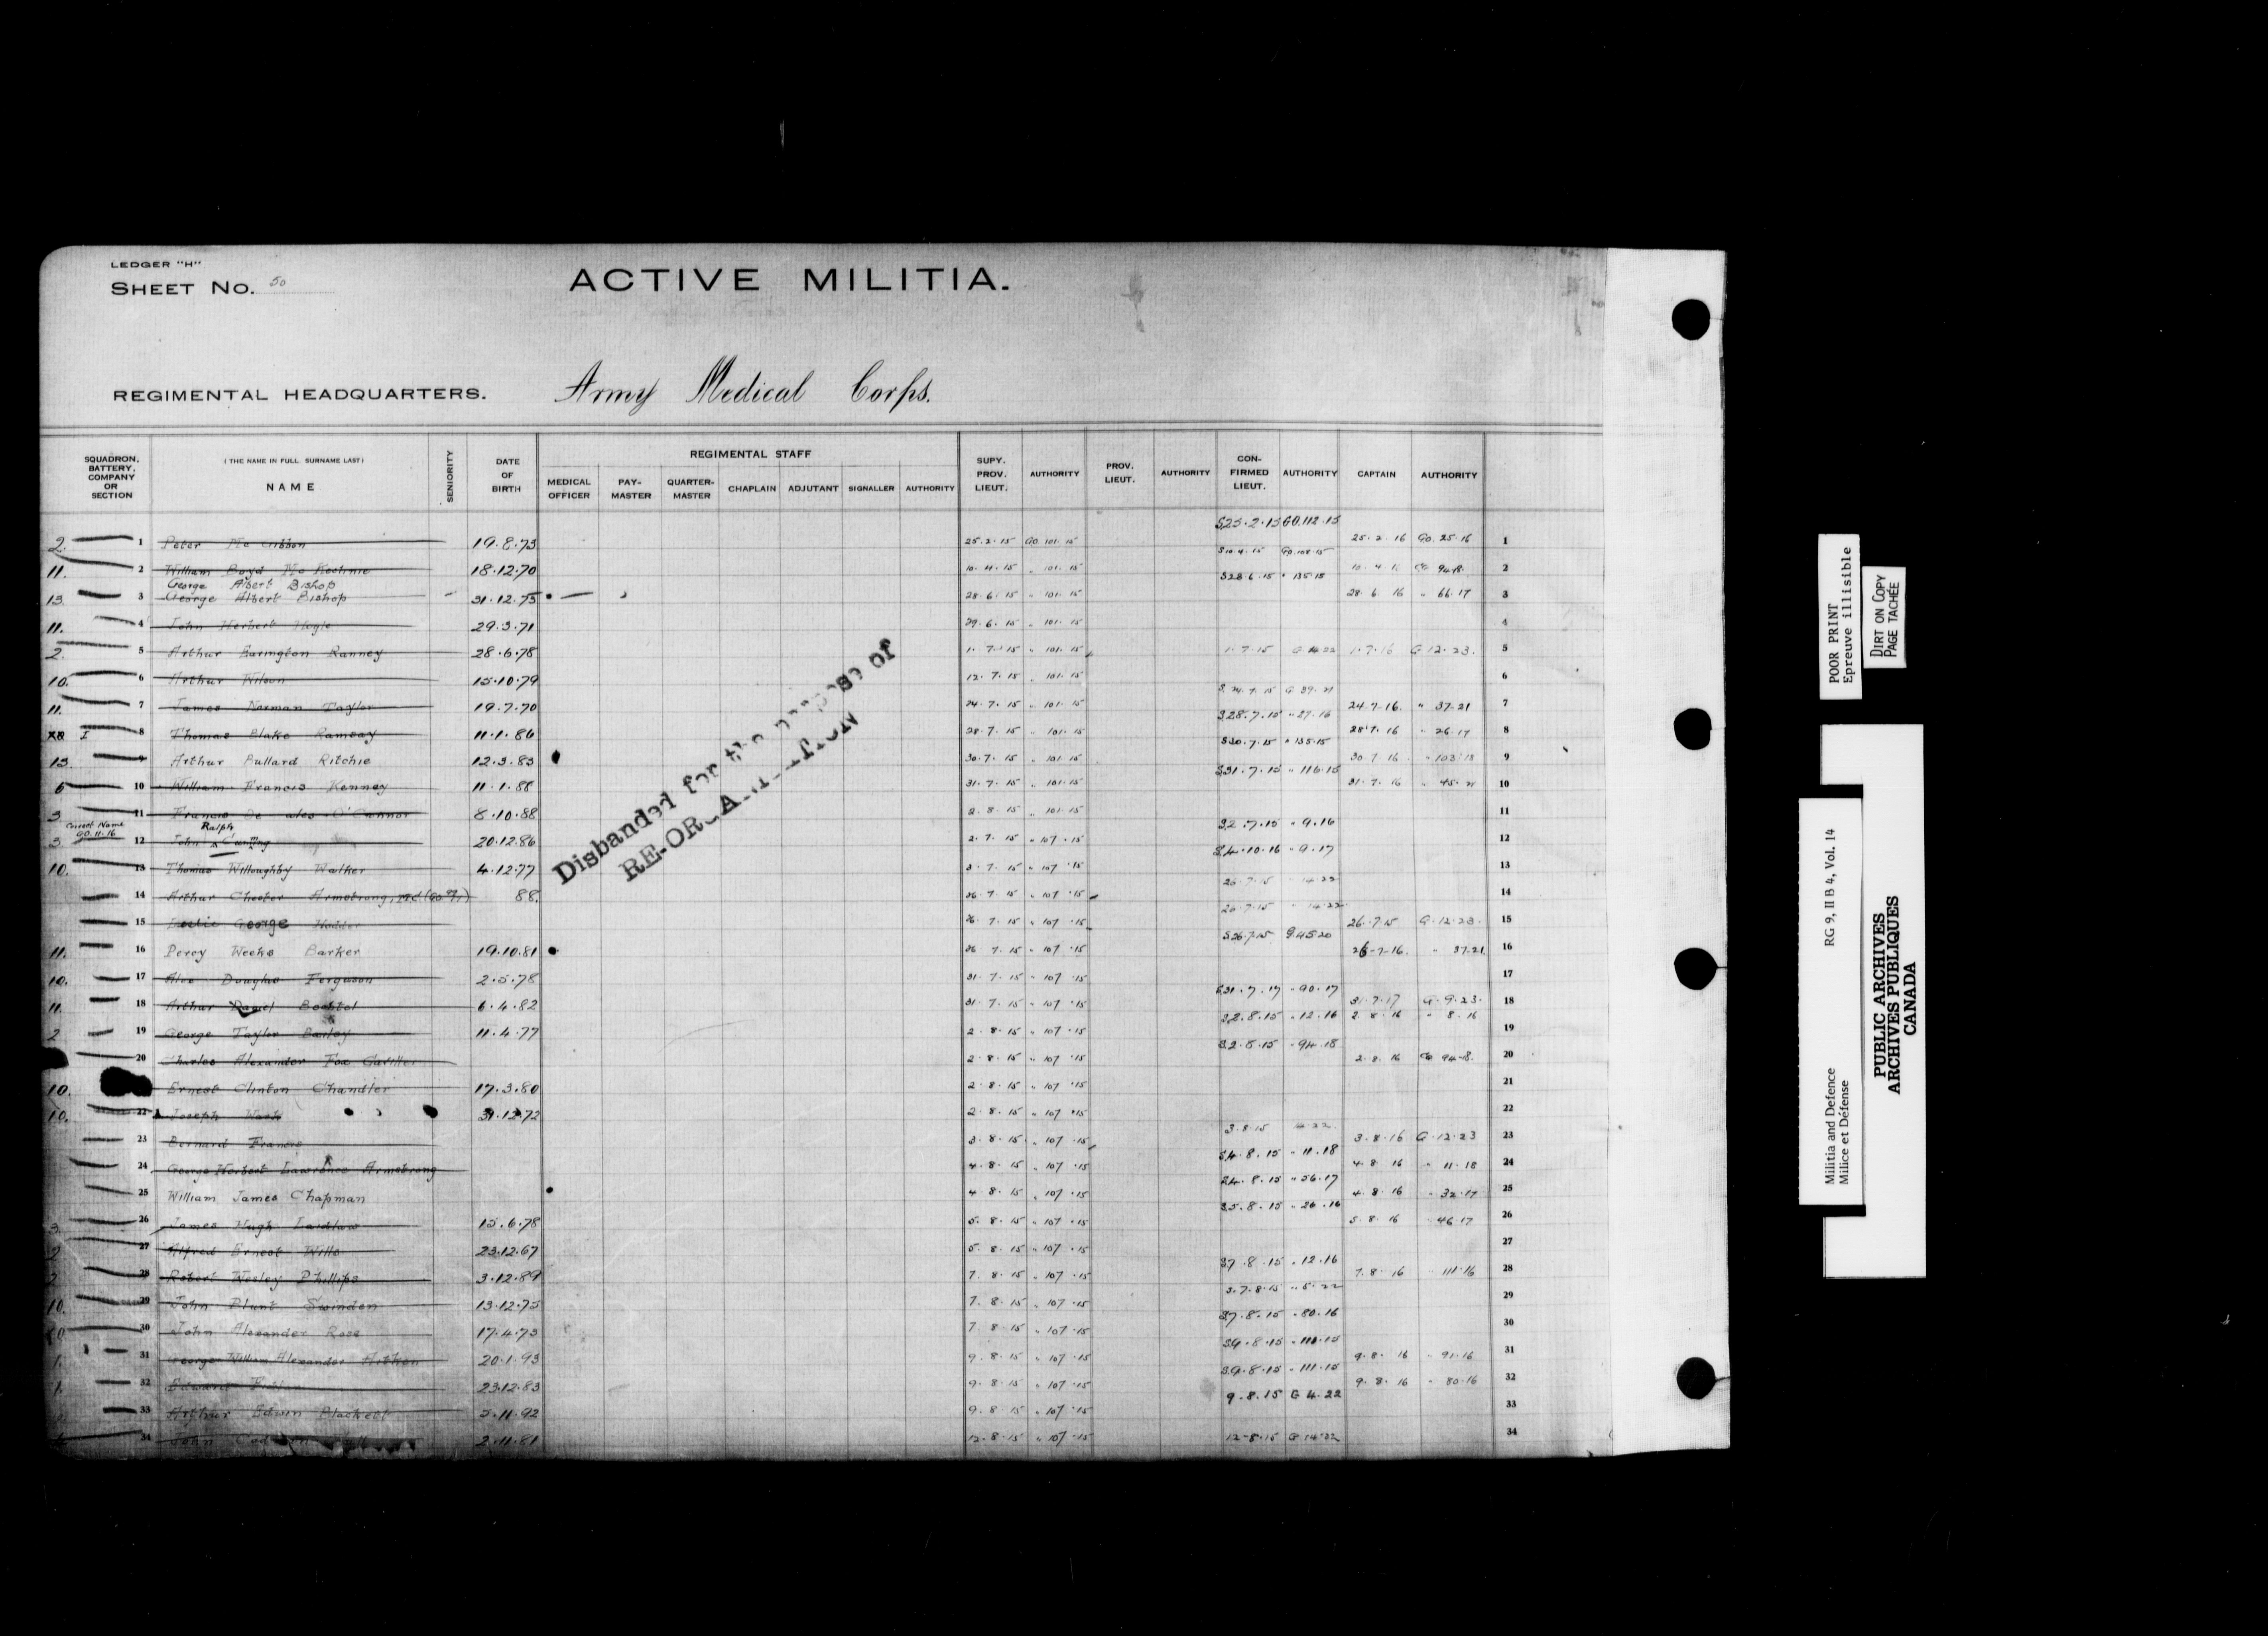 LEDGER "H"
SHEET No. 50
ACTIVE MILITIA.
REGIMENTAL HEADQUARTERS. Army Medical Corps.
SQUADRON, BATTERY, COMPANY OR SECTION
(THE NAME IN FULL. SURNAME LAST)
NAME
SENIORITY
DATE OF BIRTH
REGIMENTAL STAFF
MEDICAL OFFICER
PAY-MASTER
QUARTER-MASTER
CHAPLAIN
ADJUTANT
SIGNALLER
AUTHORITY
SUPY. PROV. LIEUT.
AUTHORITY
PROV. LIEUT.
AUTHORITY
CON-FIRMED LIEUT.
AUTHORITY
CAPTAIN
AUTHORITY
S25.2.15 GO.112.15
2. 1 Peter Mc Gibbon 19.8.73 25.2.15 GO 101.15 25.2.16 GO.25.16 1
S10.4.15 GO.108.15
11. 2 William Boyd Mc Kechnie 18.12.70 10.4.15 " 101.15 2
George Albert Bishop
13. 3 George Albert Bishop 31.12.75 28.6.15 " 101.15 28.6.16 " 66.17 3
11. 4 John Herbert Hogle 29.3.71 29.6.15 " 101.15 4
2. 5 Arthur Ranney 28.6.78 1.7.15 " 101.15 1.7.15 1.7.16 G.12.23. 5
10. 6 Arthur Wilson 15.10.79 12.7.15 " 101.15 6
11. 7 James Norman Taylor 19.7.70 24.7.15 " 101.15 24.7.16. " 37.21 7
S28.7.15 " 27.16
I 8 Thomas Blake Ramsay 11.1.86 28.7.15 " 101.15 28.7.16 " 26.17 8
S30.7.15 " 135.15
13. 9 Arthur Pullard Ritchie 12.3.83 30.7.15 " 101.15 30.7.16 9
S31.7.15 " 116.15
6 10 William Francis Kenney 11.1.88 31.7.15 " 101.15 31.7.16 10
3. 11 Francis De ales O'Connor 8.10.88 2.8.15 " 101.15 11
Correct Name GO.11.16 Ralph
S2.7.15 " 9.16
3 12 John 20.12.86 2.7.15 " 107.15 12
S4.10.16 " 9.17
10. 13 Thomas Willoughby Walker 4.12.77 3.7.15 " 107.15 13
14 Arthur Chester Armstrong, 88. 26.7.15 " 107.15 14
26.7.15 " 14.22
15 Leslie George Hodder 26.7.15 " 107.15 26.7.15 G.12.23. 15
S26.7.15 G.45.20
11. 16 Percy Weeks Barker 19.10.81 26 7.15 " 107.15 26-7-16. " 37.21. 16
10. 17 Alex Douglas Ferguson 2.5.78 31.7.15 " 107.15 17
S31.7.17 " 90.17
11. 18 Arthur Daniel Bechtel 6.4.82 31.7.15 " 107.15 31.7.17 G.9.23. 18
S2.8.15 " 12.16
2 19 George Taylor Bailey 11.4.77 2.8.15 " 107.15 2.8.16 " 8.16 19
S2.8.15 " 94.18
20 Charles Alexander Fox 2.8.15 " 107.15 2.8.16 20
10. Ernest Clinton Chandler 17.3.80 2.8.15 " 107.15 21
10. 22 Joseph 31.12.72 2.8.15 " 107.15 22
3.8.15
23 Bernard Francis 3.8.15 " 107.15 3.8.16 G.12.23 23
S4.8.15 " 11.18
24 George Herbert Lawrence Armstrong 4.8.15 " 107.15 4.8.16 " 11.18 24
S4.8.15 " 56.17
25 William James Chapman 4.8.15 " 107.15 4.8.16 " 32.17 25
S5.8.15 " 26.16
3. 26 James Hugh Laidlaw 15.6.78 5.8.15 " 107.15 5.8.16 " 46.17 26
2 27 Alfred Ernest Wills 23.12.67 5.8.15 " 107.15 27
S7.8.15 " 12.16
2 28 Robert Wesley Phillips 3.12.89 7.8.15 " 107.15 7.8.16 " 111.16 28
S.7.8.15 " 5.22
10. 29 John Plunt Swinden 13.12.75 7.8.15 " 107.15 29
S7.8.15 " 80.16
10 30 John Alexander Rose 17.4.73 7.8.15 " 107.15 30
S9.8.15 " 111.15
1. 31 George William Alexander Aitken 20.1.93 9.8.15 " 107.15 9.8.16 " 91.16 31
S9.8.15 " 111.15
1. 32 Edward 23.12.83 9.8.15 " 107.15 9.8.16 " 80.16 32
9.8.15 G 4.22
33 Arthur Edwin Plackett 5.11.92 9.8.15 " 107.15 33
34 John 2.11.81 12.8.15 " 107.15 12-8-15 G 14.22 34
Disbanded for the purpose of
RE-ORGANIZATION
POOR PRINT
Epreuve illisible
DIRT ON COPY
PAGE TACHÉE
Militia and Defence RG 9, II B 4, Vol. 14
Milice et Défense
PUBLIC ARCHIVES
ARCHIVES PUBLIQUES
CANADA